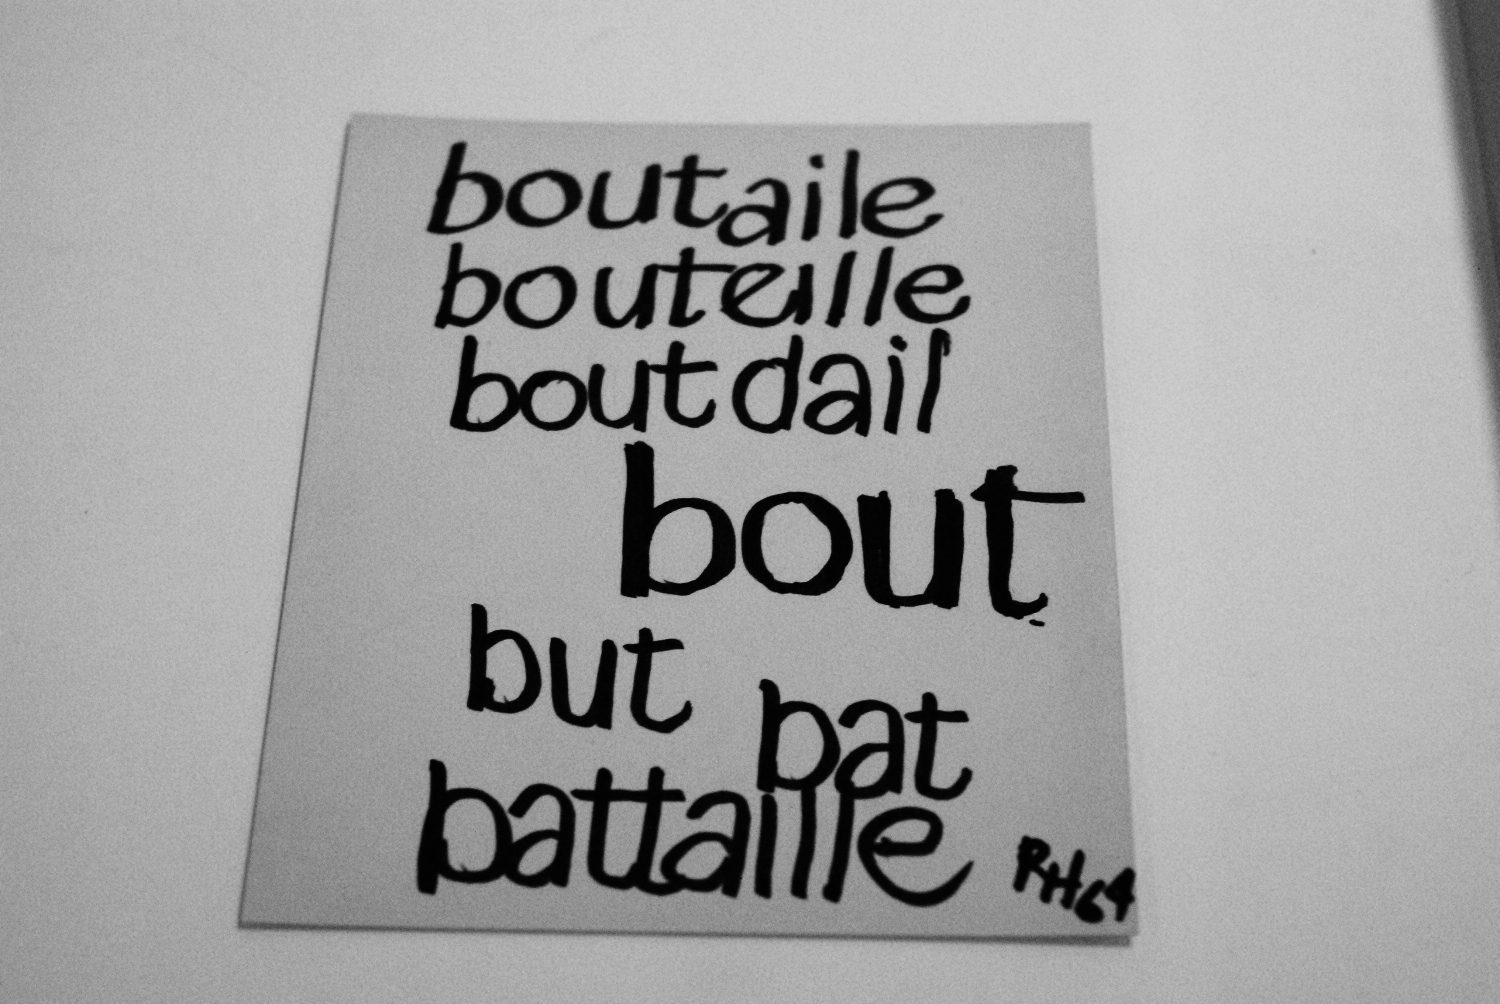 boutaile
bouteille
bout dail
bout
but
bat
battaille
RH64